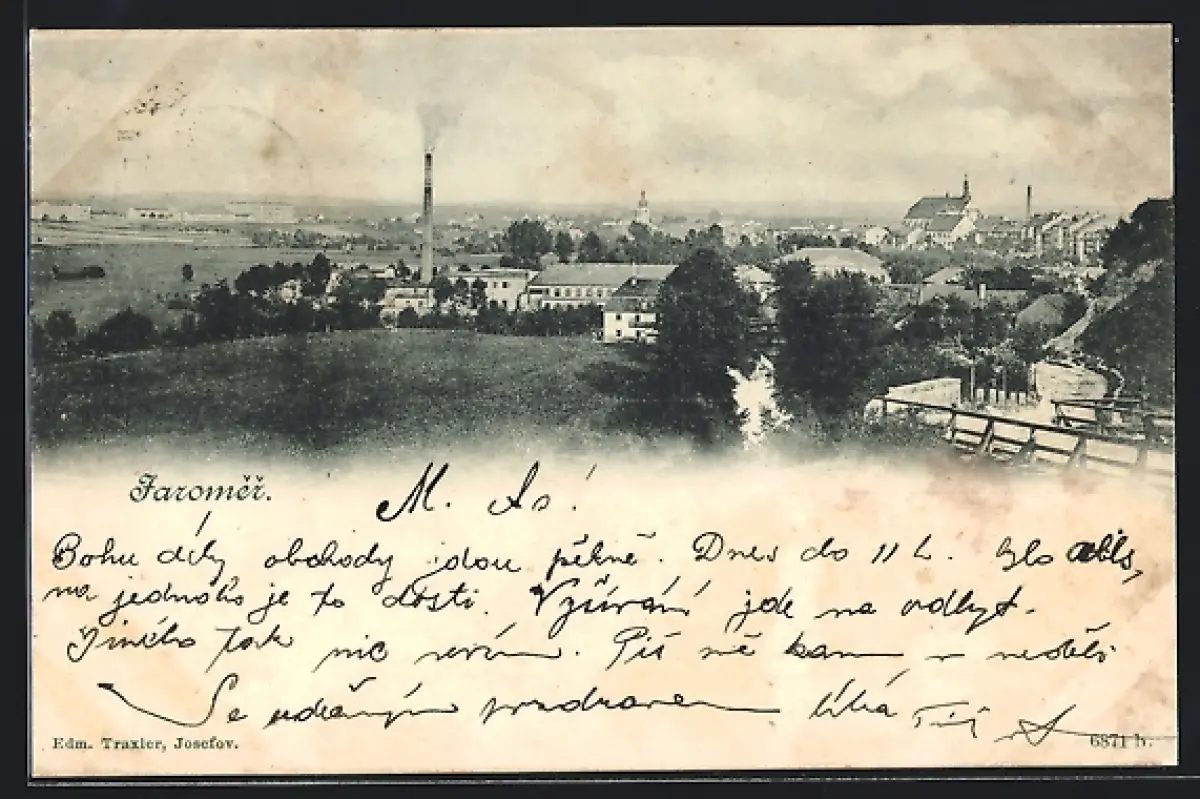 Jaroměř.
M. As!
Bohu díky obchody jdou pěkně. Dnes do 11 h. bylo
na jednoho je to dosti. Vzšívání jde na odbyt.
Jiného tak nic nevím. Piš mě kam v neděli
Se srdečným pozdravem líbá Tě
Edm. Traxler, Josefov.
6871 b.